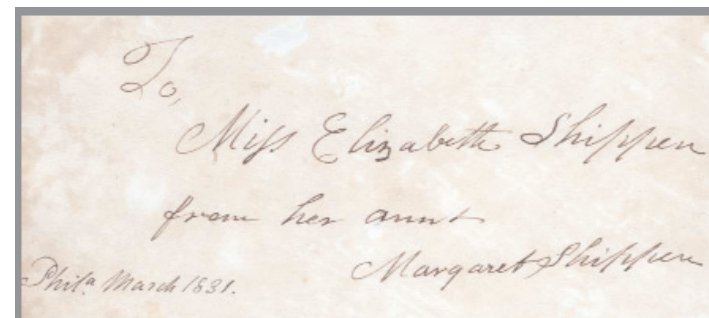 To,
Miss Elizabeth Shippen
from her aunt
Margaret Shippen
Phila March 1831.